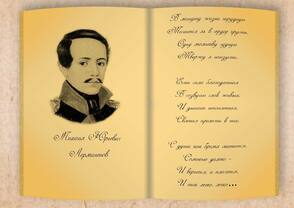 Михаил Юрьевич
Лермонтов
В минуту жизни трудную
Теснится ль в сердце грусть,
Одну молитву чудную
Твержу я наизусть.
Есть сила благодатная
В созвучьи слов живых,
И дышит непонятная,
Святая прелесть в них.
С души как бремя скатится,
Сомненье далеко —
И верится, и плачется,
И так легко, легко...